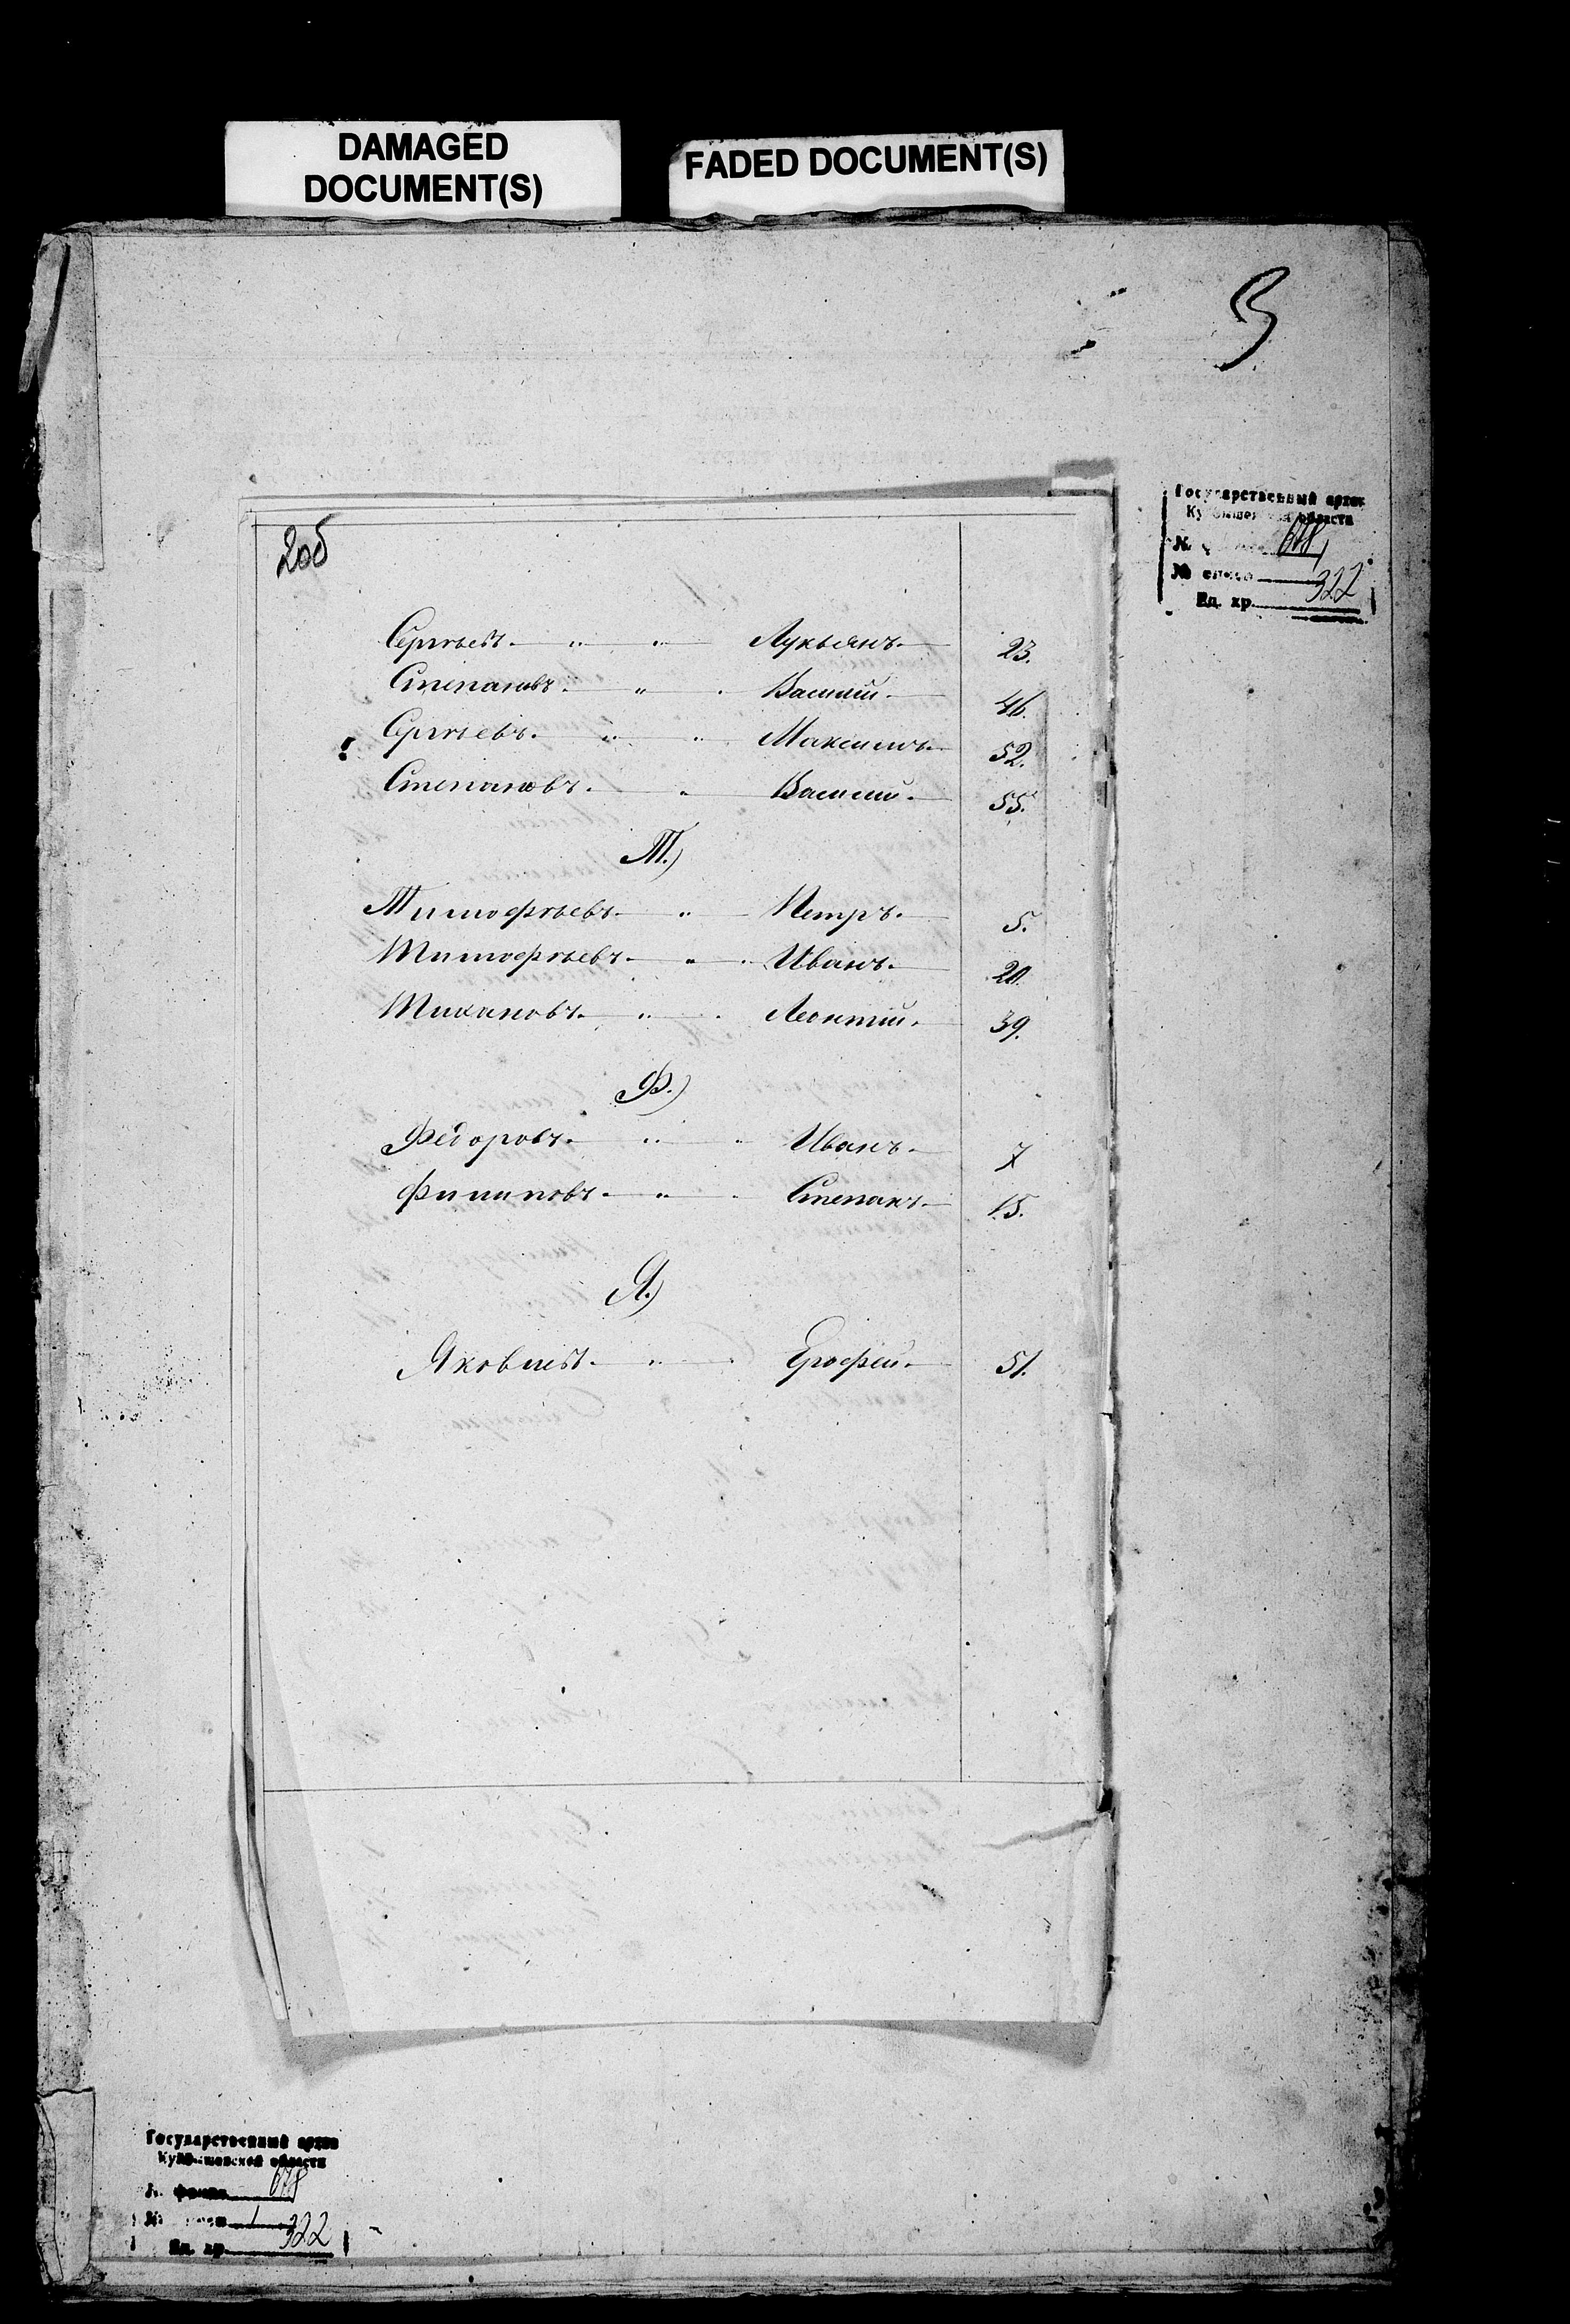 DAMAGED
DOCUMENT(S)
FADED DOCUMENT(S)
Государственный архив
Куйбышевской области
№ 678
№ описи 1
Ед. хр. 322
2об
Сергѣевъ. " " Лукьянъ. 23.
Степановъ. " Василій. 46.
Сергѣевъ. " " Максимъ. 52.
Степановъ. " Василій. 55.
Т.)
Тимофѣевъ. " Петръ. 5.
Тимофѣевъ. " Иванъ. 20.
Тихановъ. " Леонтій. 39.
Ф.)
Федоровъ. " " Иванъ. 7
Филиповъ. " Степанъ. 15.
Я.)
Яковлевъ. " Ерофей. 51.
Государственный архив
Куйбышевской области
№ фонда 678
№ 1
Ед. хр. 322